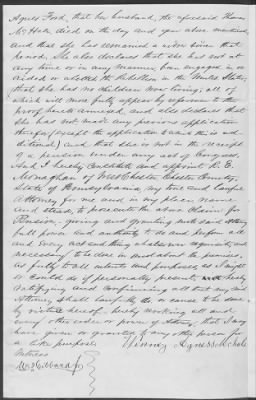 Agness Ford, that her husband, the aforesaid Thomas
McHale died on the day and year above mentioned
and that she has remained a widow since that
period. She also declares that she has not at
any time or in any manner been engaged in or
aided or abetted the Rebellion in the United States
that she has no children now living; all of
which will more fully appear by reference to the
proof hereto annexed, and also declares that
she has not made any previous application
therefor (except the application to which this is ad-
ditional) and that she is not in the receipt
of a pension under any act of Congress
And I hereby constitute and appoint
Monaghan of West Chester Chester County,
State of Pennsylvania, my true and lawful
Attorney for me and in my place name
and stead, to prosecute the above claim for
Pension, giving and granting unto said Attorney
full power and authority to do and perform all
and every act and thing whatsoever requisite and
necessary to be done in and about the premises
as fully to all intents and purposes as I might
or could do if personally present, and hereby
ratifying and confirming all that my said
Attorney shall lawfully do or cause to be done
by virtue hereof. hereby revoking all and
every other order or power of Attorney, that I may
have given or granted to any other person for
a like purpose. Agness McHale
Witness
Hibbard